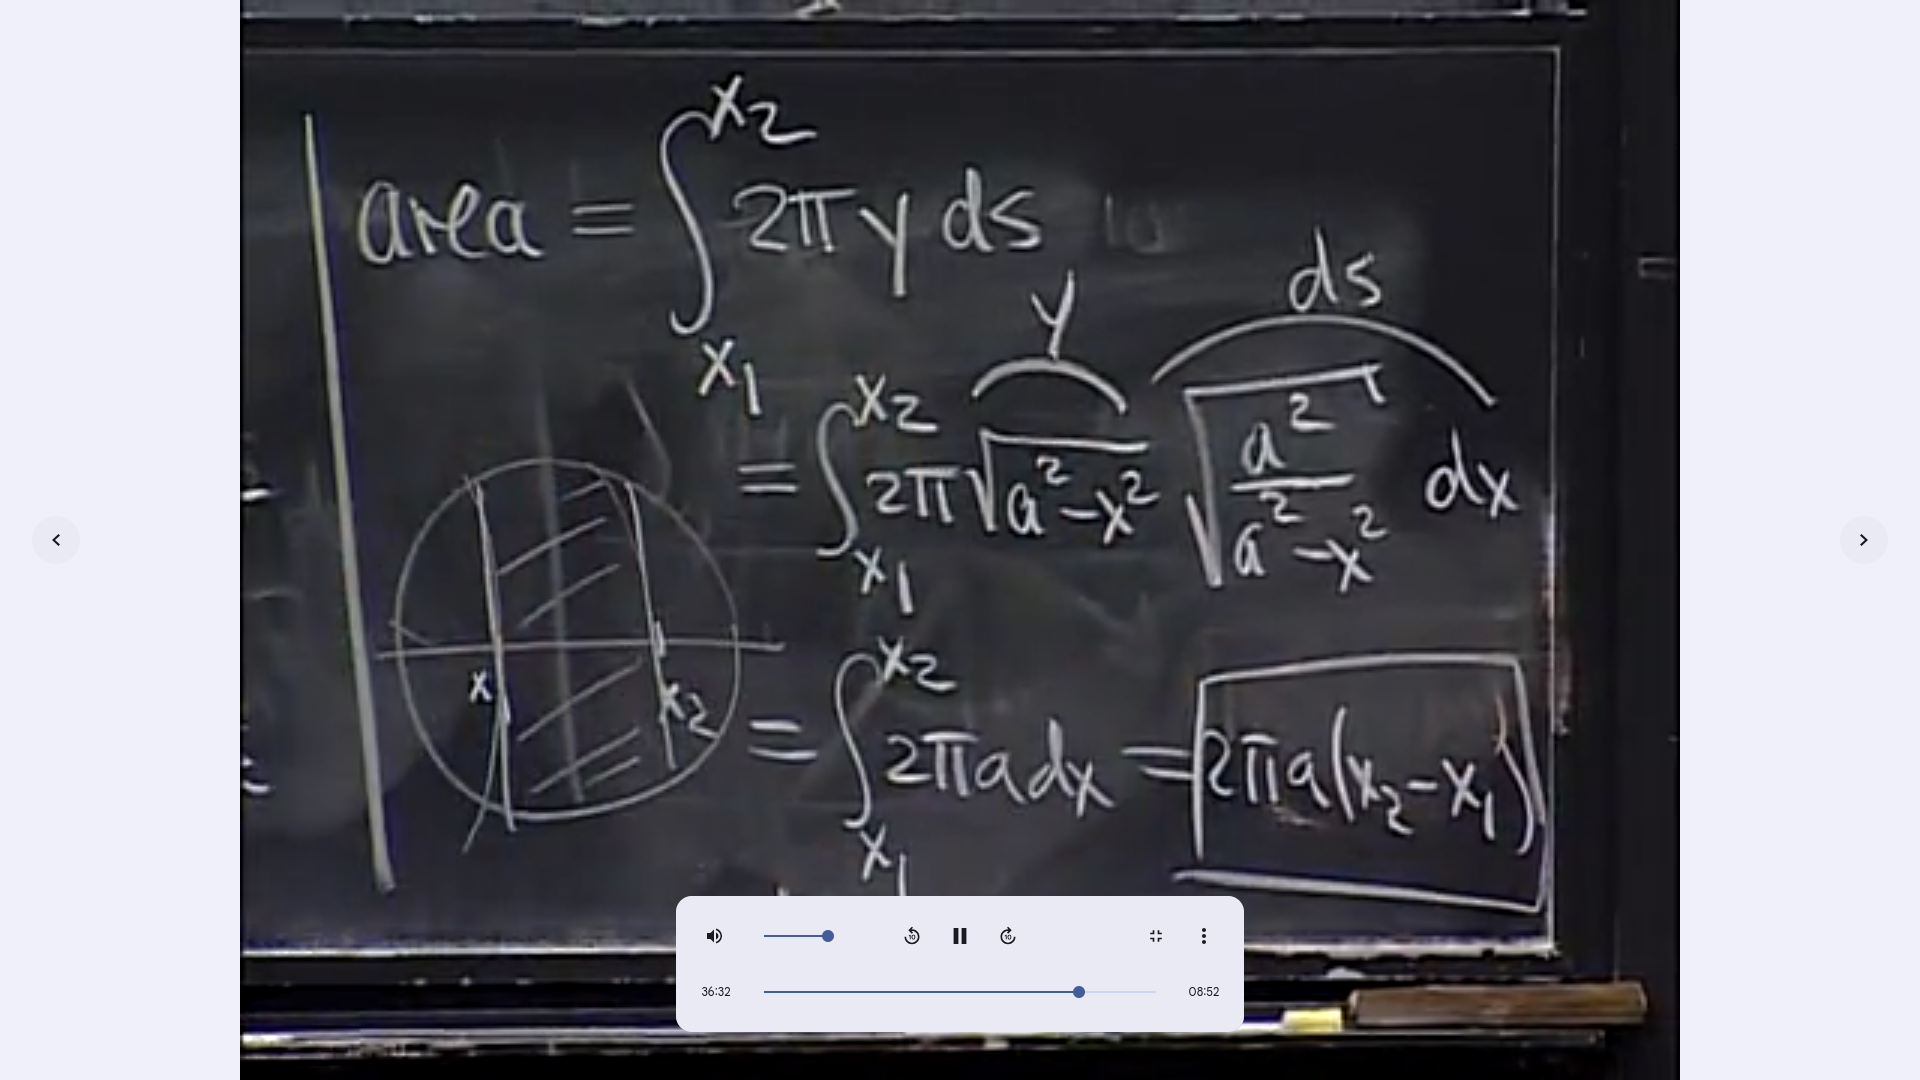 area = ∫_{x₁}^{x₂} 2π y ds
y ds
= ∫_{x₁}^{x₂} 2π √(a²-x²) √(a²/(a²-x²)) dx
x x₂
= ∫_{x₁}^{x₂} 2πa dx = 2πa(x₂-x₁)
10 10
36:32 08:52